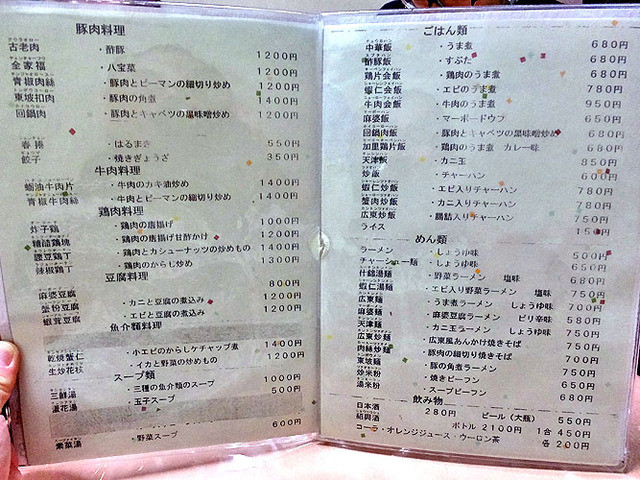 豚肉料理
古老肉 ・酢豚 1200円
全家福 ・八宝菜 1200円
青椒肉絲 ・豚肉とピーマンの細切り炒め 1200円
東坡扣肉 ・豚肉の角煮 1400円
回鍋肉 ・豚肉とキャベツの黒味噌炒め 1200円
春捲 ・はるまき 550円
餃子 ・焼きぎょうざ 350円
牛肉料理
蠔油牛肉片 ・牛肉のカキ油炒め 1400円
青椒牛肉絲 ・牛肉とピーマンの細切り炒め 1400円
鶏肉料理
炸子鶏 ・鶏肉の唐揚げ 1000円
糖醋鶏塊 ・鶏肉の唐揚げ甘酢かけ 1200円
腰豆鶏丁 ・鶏肉とカシューナッツの炒めもの 1400円
辣椒鶏丁 ・鶏肉のからし炒め 1300円
豆腐料理
麻婆豆腐 800円
蟹粉豆腐 ・カニと豆腐の煮込み 1200円
蝦茸豆腐 ・エビと豆腐の煮込み 1200円
魚介類料理
乾焼蟹仁 ・小エビのからしケチャップ煮 1400円
生炒花枝 ・イカと野菜の炒めもの 1200円
スープ類
三鮮湯 ・三種の魚介類のスープ 1000円
蛋花湯 ・玉子スープ 500円
600円
素菜湯 ・野菜スープ
ごはん類
中華飯 ・うま煮 680円
酢豚飯 ・すぶた 680円
鶏片会飯 ・鶏肉のうま煮 680円
蝦仁会飯 ・エビのうま煮 780円
牛肉会飯 ・牛肉のうま煮 950円
麻婆飯 ・マーボードウフ 650円
回鍋肉飯 ・豚肉とキャベツの黒味噌炒め 680円
加里鶏片飯 ・鶏肉のうま煮 カレー味 680円
天津飯 ・カニ玉 850円
炒飯 ・チャーハン 600円
蝦仁炒飯 ・エビ入りチャーハン 780円
蟹肉炒飯 ・カニ入りチャーハン 780円
広東炒飯 ・腸詰入りチャーハン 750円
ライス 150円
めん類
ラーメン ・しょうゆ味 500円
チャーシュー麺 ・しょうゆ味 650円
什錦湯麺 ・野菜ラーメン 塩味 680円
蝦仁湯麺 ・エビ入り野菜ラーメン 塩味 750円
広東麺 ・うま煮ラーメン しょうゆ味 700円
麻婆麺 ・麻婆豆腐ラーメン ピリ辛味 580円
天津麺 ・カニ玉ラーメン しょうゆ味 750円
広東炒麺 ・広東風あんかけ焼きそば 750円
肉絲炒麺 ・豚肉の細切り焼きそば 700円
東坡麺 ・豚の角煮ラーメン 750円
炒米粉 ・焼きビーフン 650円
湯米粉 ・スープビーフン 680円
飲み物
日本酒 280円 ビール（大瓶） 550円
紹興酒 ボトル 2100円 1合 450円
コーラ・オレンジジュース・ウーロン茶 各 200円